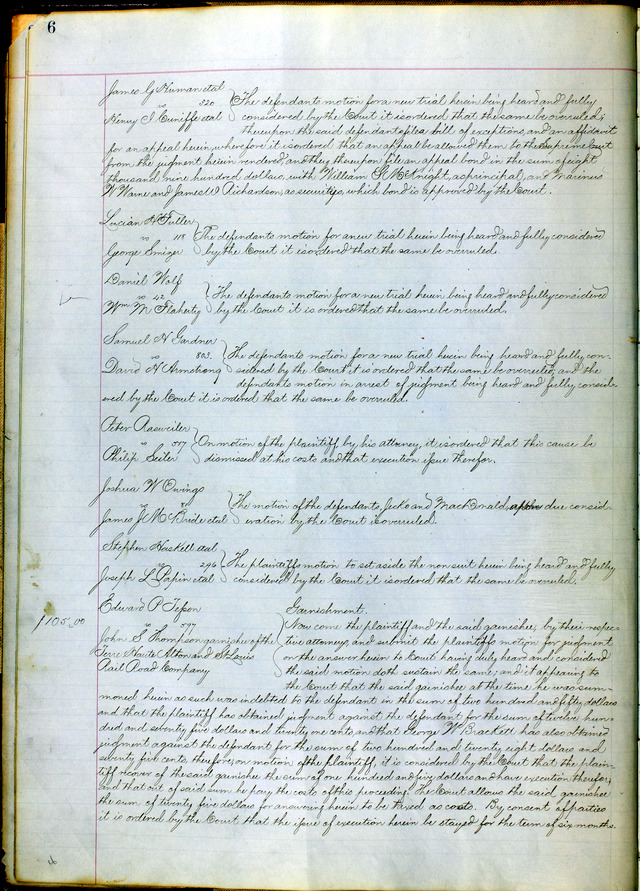 6
James G Human etal
vs 320
Henry S Cuniffe etal
The defendants motion for a new trial herein being heard and fully
considered by the Court it is ordered that the same be overruled;
thereupon the said defendants file a bill of exceptions, and an affidavit
for an appeal herein, wherefore it is ordered that an appeal be allowed them to the Supreme Court
from the judgment herein rendered, and they thereupon file an appeal bond in the sum of eight
thousand nine hundred dollars, with William McKnight, as principal, and Marinus
W Warne and James W Richardson, as securities, which bond is approved by the Court.
Lucian H Fuller
vs 118
George Smizer
The defendants motion for a new trial herein being heard and fully considered
by the Court it is ordered that the same be overruled.
Daniel Wolf
vs 42
Wm M Flaherty
The defendants motion for a new trial herein being heard and fully considered
by the Court it is ordered that the same be overruled.
Samuel H Gardner
vs 803.
David H Armstrong
The defendants motion for a new trial herein being heard and fully con-
sidered by the Court it is ordered that the same be overruled, and the
defendants motion in arrest of judgment being heard and fully consid-
ered by the Court it is ordered that the same be overruled.
Peter Rasweiler
vs 577
Philip Seiter
On motion of the plaintiff by his attorney, it is ordered that this cause be
dismissed at his costs and that execution issue therefor.
Joshua W Owings
vs
James J McBride etal
The motion of the defendants, Jecko and MacDonald, after due consid-
eration by the Court is overruled.
Stephen Haskell etal
vs 246
Joseph L Papin etal
The plaintiffs motion to set aside the non suit herein being heard and fully
considered by the Court it is ordered that the same be overruled.
Edward P Tesson
vs 797
$105,00
John S Thompson garnishee of the
Terre Haute Alton and St Louis
Rail Road Company
Garnishment.
Now come the plaintiff and the said garnishee, by their respec-
tive attorneys, and submit the plaintiffs motion for judgment
on the answer herein to Court having duly heard and considered
the said motion doth sustain the same; and it appearing to
the Court that the said garnishee at the time he was sum-
moned herein as such was indebted to the defendant in the sum of two hundred and fifty dollars
and that the plaintiff has obtained judgment against the defendant for the sum of twelve hun-
dred and seventy five dollars and twenty one cents and that George W Brackett has also obtained
judgment against the defendant for the sum of two hundred and twenty eight dollars and
seventy five cents therefore, on motion of the plaintiff, it is considered by the Court that the plain-
tiff recover of the said garnishee the sum of one hundred and five dollars and have execution therefor,
and that out of said sum he pay the costs of this proceeding. The Court allows the said garnishee
the sum of twenty five dollars for answering herein to be taxed as costs. By consent of parties
it is ordered by the Court that the issue of execution herein be stayed for the term of six months.